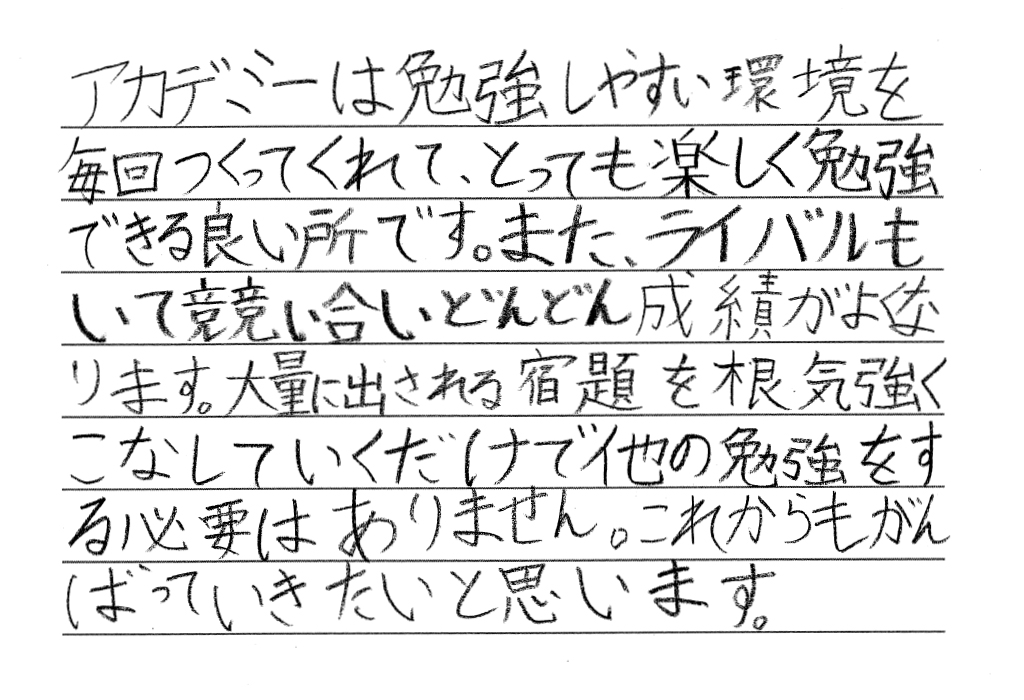 アカデミーは勉強しやすい環境を
毎回つくってくれて、とっても楽しく勉強
できる良い所です。また、ライバルも
いて競い合いどんどん成績がよくな
ります。大量に出される宿題を根気強く
こなしていくだけで他の勉強をす
る必要はありません。これからもがん
ばっていきたいと思います。